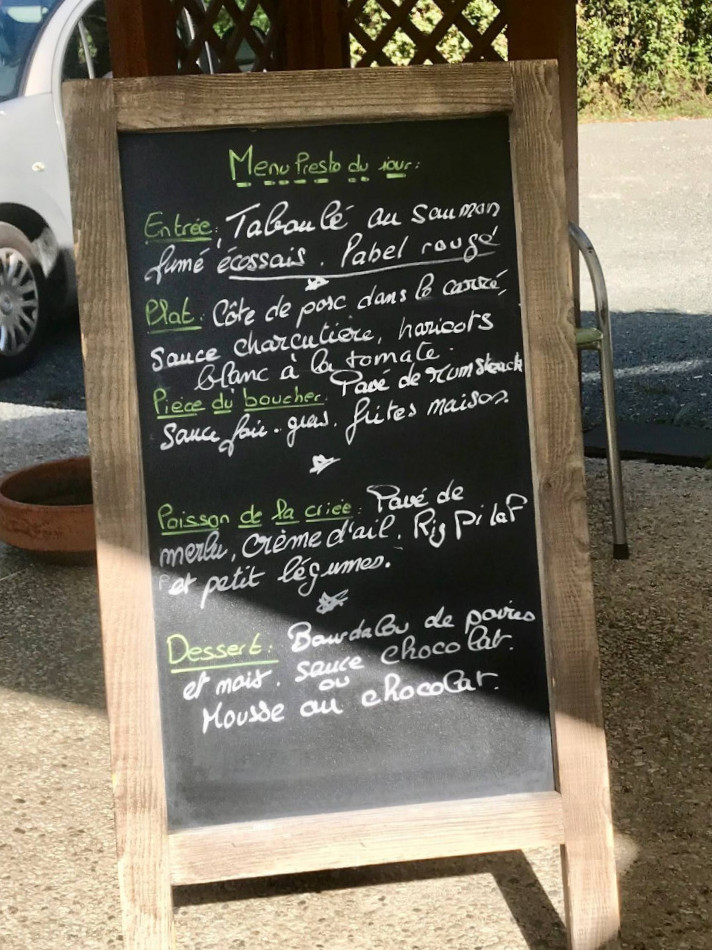 Menu Presto du jour:
Entrée: Taboulé au saumon
fumé écossais. label rouge
Plat: Côte de porc dans le carré,
sauce charcutière, haricots
blanc à la tomate.
Pièce du boucher: Pavé de rumsteack
sauce foie-gras. frites maison.
Poisson de la criée: Pavé de
merlu, crème d'ail. Riz Pilaf
et petit légumes.
Dessert: Bourdalou de poires
et mais. sauce chocolat.
ou
Mousse au chocolat.